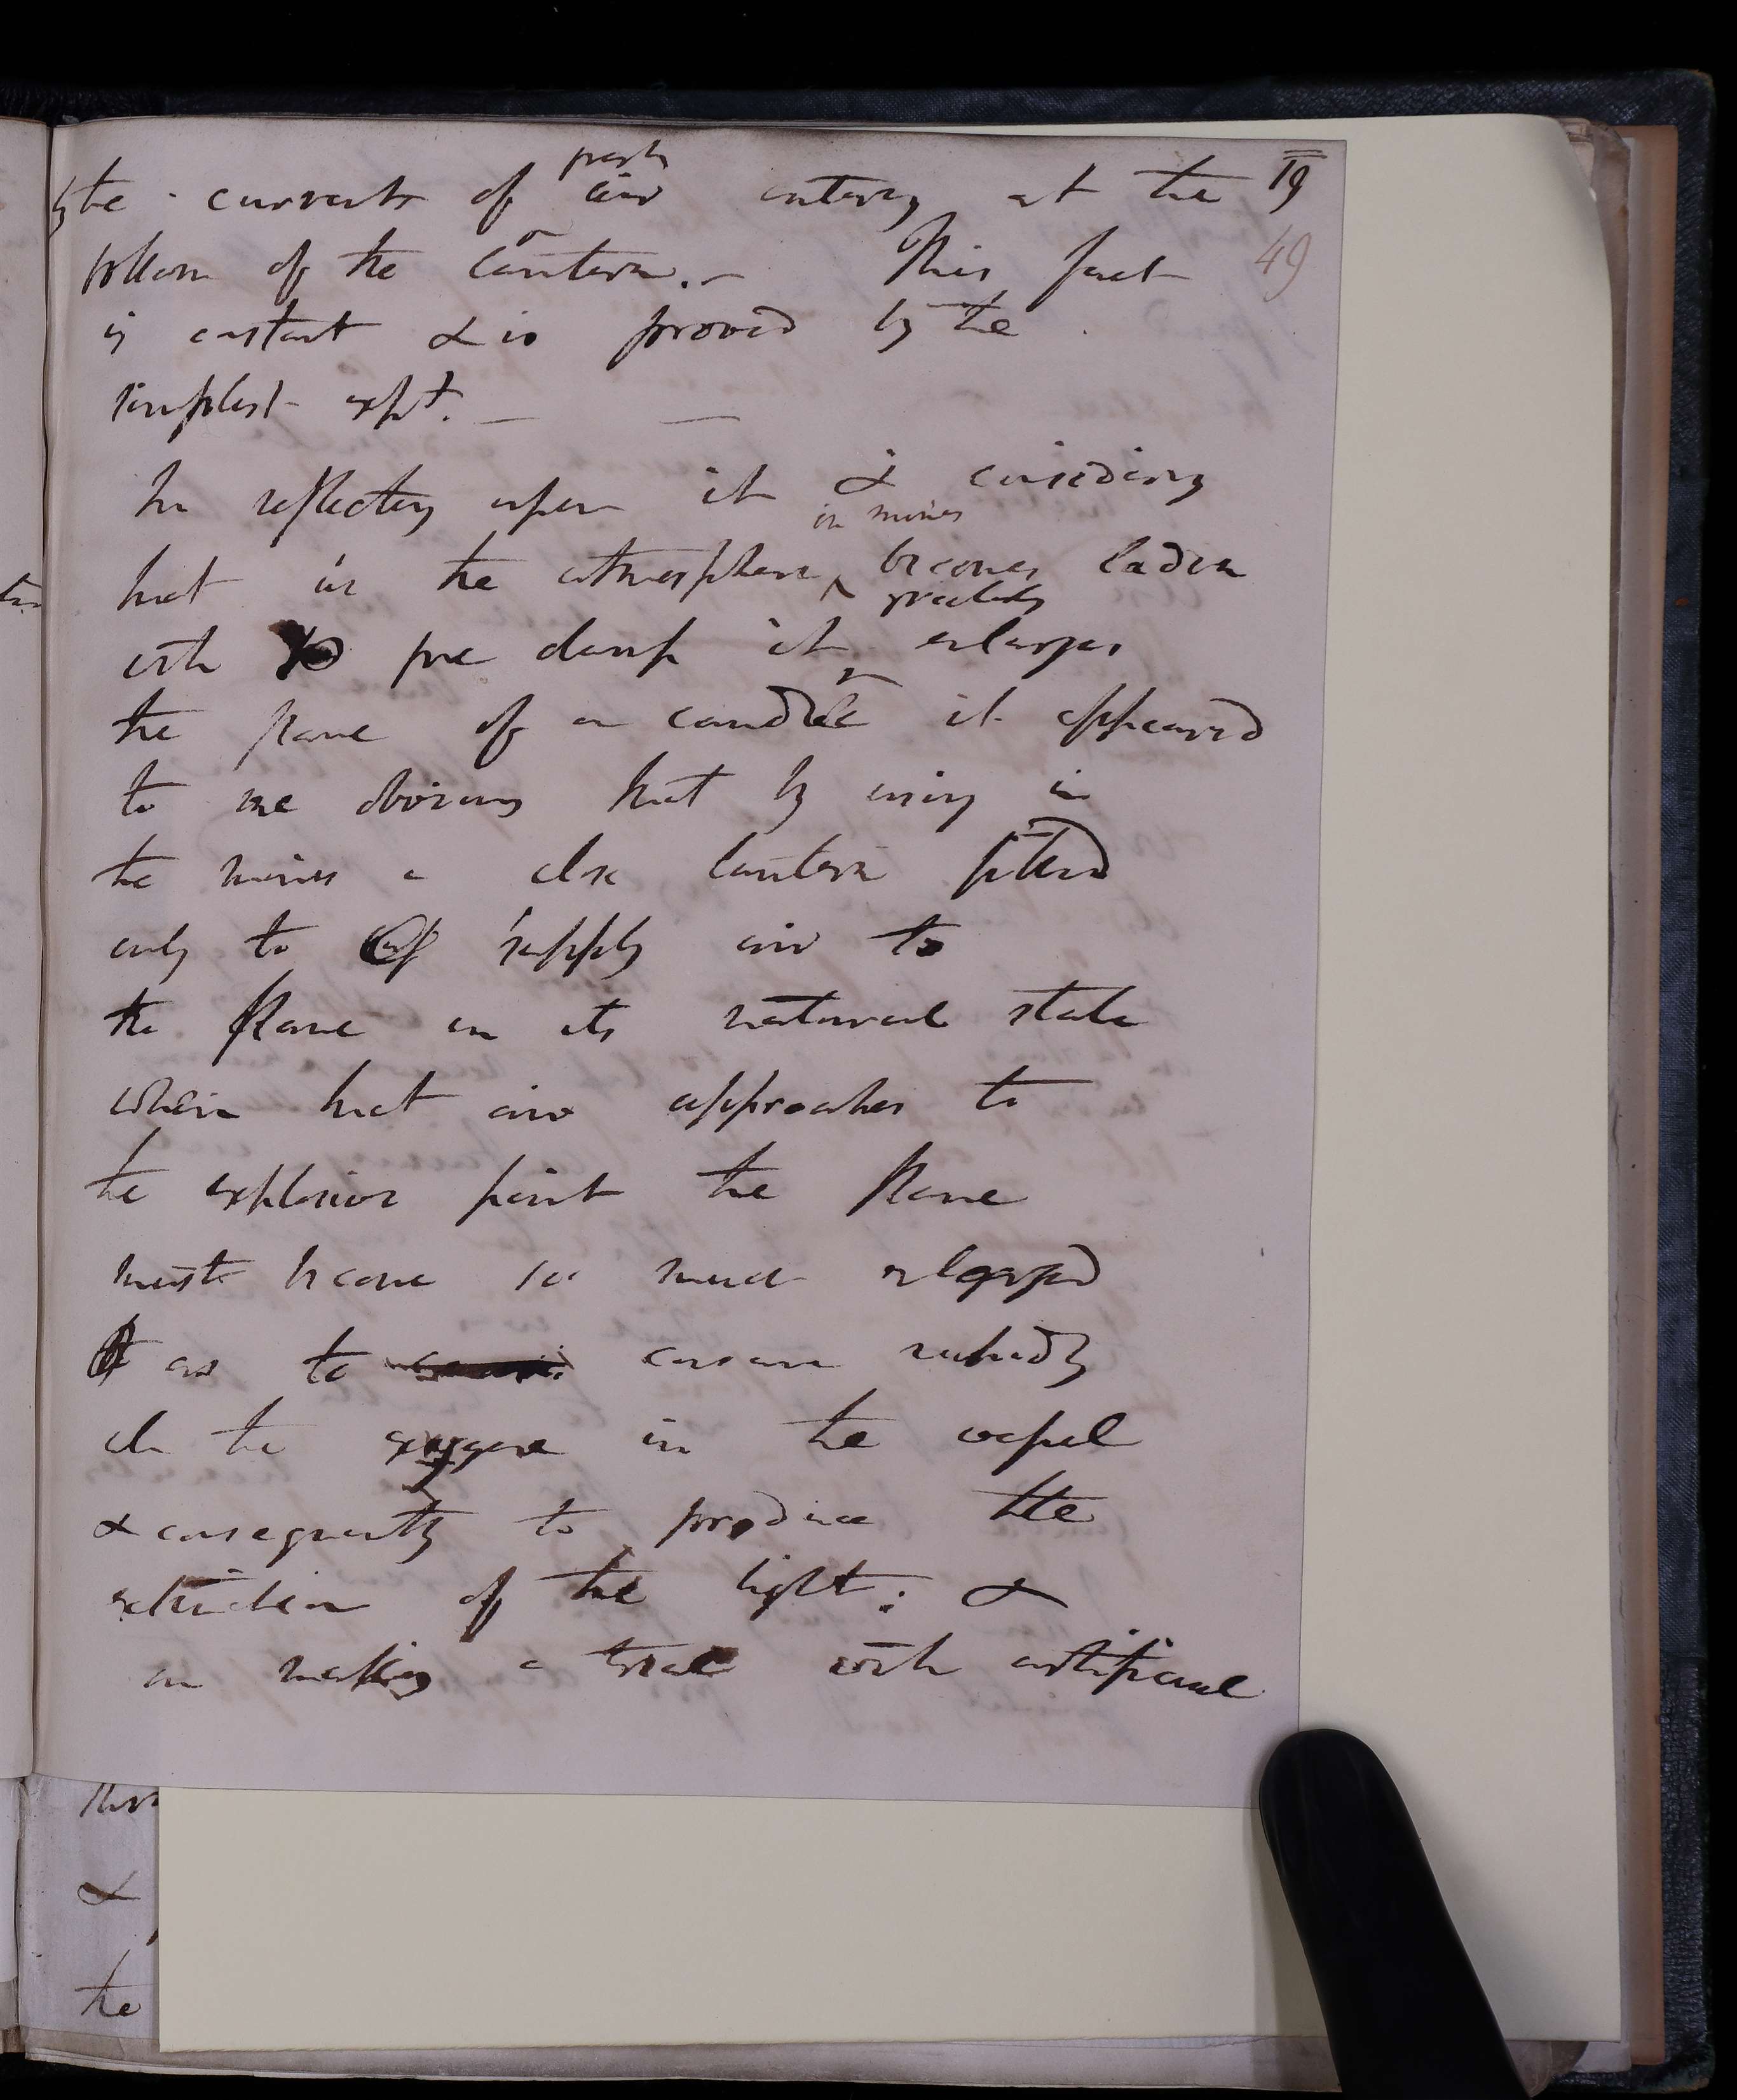 by the currents of fresh air entering at the 19
bottom of the lantern. – This fact 49
is constant & is proved by the
simplest expt. –
In reflecting upon it & considering
that as the atmosphere in mines becomes laden
with fire damp it gradually enlarges
the flame of a candle it appeared
to me obvious that by using in
the mines a close lantern fitted
only to supply air to
the flame in its natural state
when that air approaches to
the explosive point the flame
must become so much enlarged
as to consume rapidly
all the oxygene in the vessel
& consequently to produce the
extinction of the light: &
on making a trial with artificial
&
the